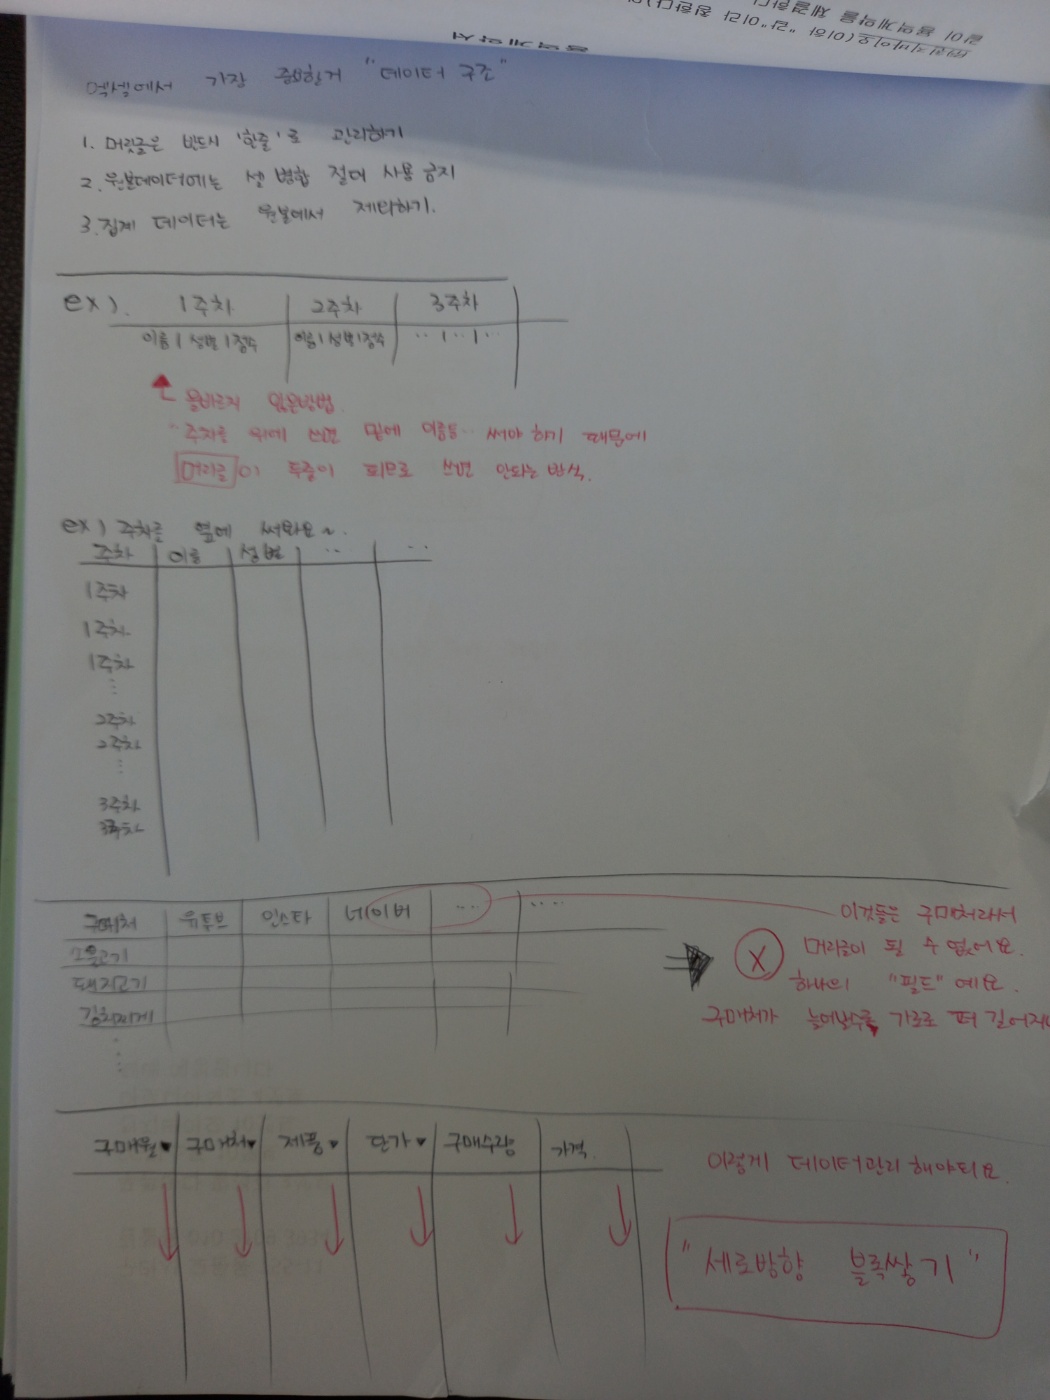 같이 용역계약을 체결한다
(이하 "갑"이라 칭한다)
용역계약서
엑셀에서 가장 중요한거 "데이터 구조"
1. 머릿글은 반드시 '한줄'로 관리하기
2. 원본데이터에는 셀 병합 절대 사용 금지
3. 집계 데이터는 원본에서 제타하기.
ex). 1주차 2주차 3주차
이름 | 성별 | 점수 이름 | 성별 | 점수 ‥ | ‥ | ‥
올바르지 않은방법.
"주차를 위에 쓰면 밑에 이름등‥ 써야 하기 때문에
머리글이 두줄이 되므로 쓰면 안되는 방식.
ex) 주차를 열에 써와요~.
주차 이름 성별 ‥ ‥
1주차
1주차
1주차
⋮
2주차
2주차
⋮
3주차
3주차
구매처 유투브 인스타 네이버 ‥ ‥‥
돼지고기
김치찌개
⋮
이것들은 구매처라서
머리글이 될 수 없어요.
X 하나의 "필드"예요.
구매처가 늘어날수록 가로로 더 길어지
구매월▾ 구매처▾ 제품▾ 단가▾ 구매수량 가격.
이렇게 데이터관리 해야되요.
"세로방향 블록쌓기"